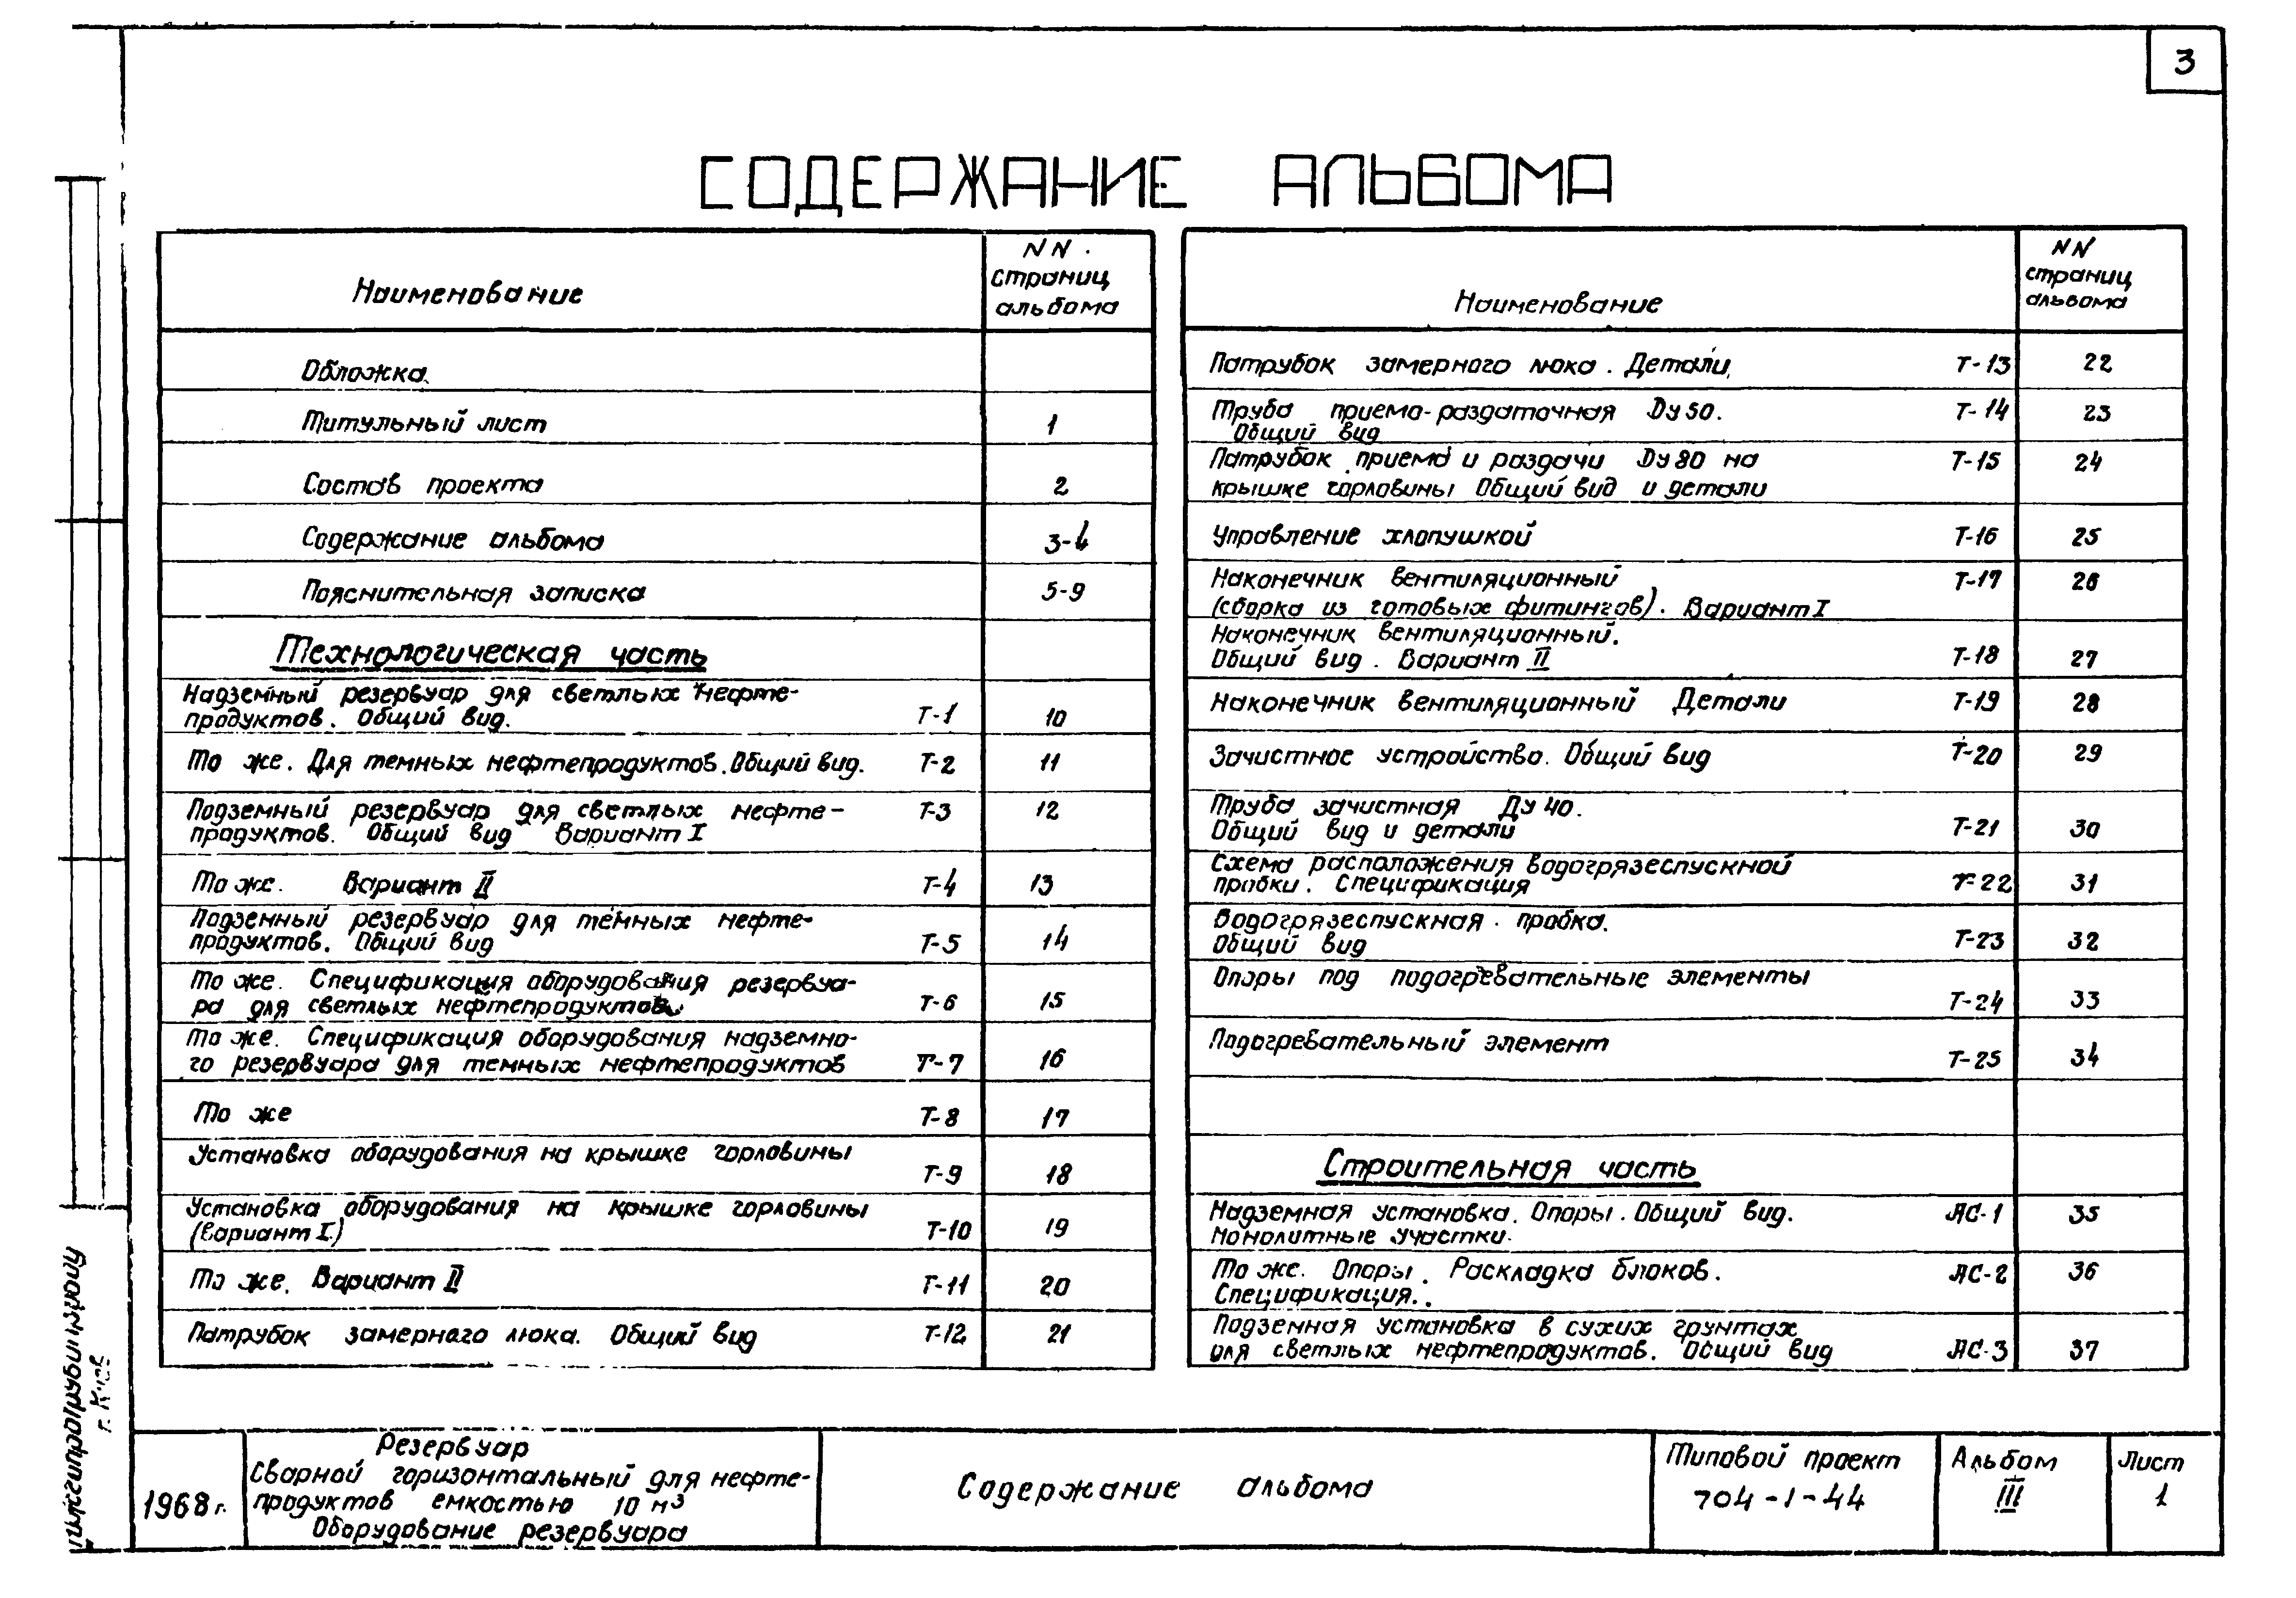 3
СОДЕРЖАНИЕ АЛЬБОМА
Наименование
NN
страниц
альбома
Обложка
Титульный лист 1
Состав проекта 2
Содержание альбома 3-4
Пояснительная записка 5-9
Технологическая часть
Надземный резервуар для светлых нефте-
продуктов. Общий вид. Т-1 10
То же. Для темных нефтепродуктов. Общий вид. Т-2 11
Подземный резервуар для светлых нефте- Т-3 12
продуктов. Общий вид Вариант I
То же. Вариант II Т-4 13
Подземный резервуар для темных нефте-
продуктов. Общий вид Т-5 14
То же. Спецификация оборудования резервуа-
ра для светлых нефтепродуктов Т-6 15
То же. Спецификация оборудования надземно-
го резервуара для темных нефтепродуктов Т-7 16
То же Т-8 17
Установка оборудования на крышке горловины
Т-9 18
Установка оборудования на крышке горловины
(Вариант I) Т-10 19
То же. Вариант II Т-11 20
Патрубок замерного люка. Общий вид Т-12 21
Наименование
NN
страниц
альбома
Патрубок замерного люка. Детали. Т-13 22
Труба приемо-раздаточная Ду 50. Т-14 23
Общий вид
Патрубок приема и раздачи Ду 80 на Т-15 24
крышке горловины Общий вид и детали
Управление хлопушкой Т-16 25
Наконечник вентиляционный Т-17 26
(сборка из готовых фитингов). Вариант I
Наконечник вентиляционный.
Общий вид. Вариант II Т-18 27
Наконечник вентиляционный Детали Т-19 28
Зачистное устройство. Общий вид Т-20 29
Труба зачистная Ду 40.
Общий вид и детали Т-21 30
Схема расположения водогрязеспускной
пробки. Спецификация Т-22 31
Водогрязеспускная пробка.
Общий вид Т-23 32
Опоры под подогревательные элементы
Т-24 33
Подогревательный элемент
Т-25 34
Строительная часть
Надземная установка. Опоры. Общий вид. АС-1 35
Монолитные участки.
То же. Опоры. Раскладка блоков. АС-2 36
Спецификация.
Подземная установка в сухих грунтах
для светлых нефтепродуктов. Общий вид АС-3 37
г. Киев
1968 г.
Резервуар
Сварной горизонтальный для нефте-
продуктов емкостью 10 м³
Оборудование резервуара
Содержание альбома
Типовой проект
704-1-44
Альбом
III
Лист
1